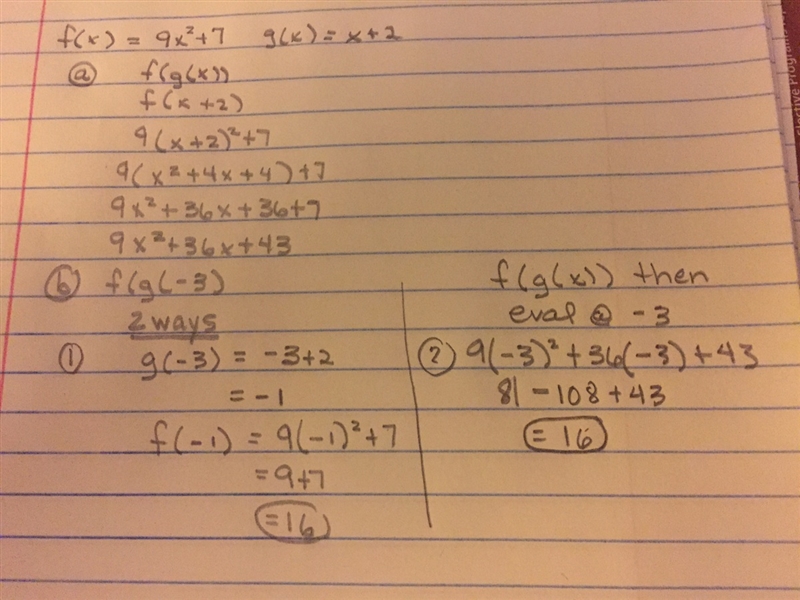 f(x) = 9x²+7 g(x) = x+2
ⓐ f(g(x))
f(x+2)
9(x+2)²+7
9(x²+4x+4)+7
9x²+36x+36+7
9x²+36x+43
ⓑ f(g(-3)
2 ways
① g(-3) = -3+2
= -1
f(-1) = 9(-1)²+7
= 9+7
=16
f(g(x)) then
eval @ -3
② 9(-3)²+36(-3)+43
81 -108+43
=16